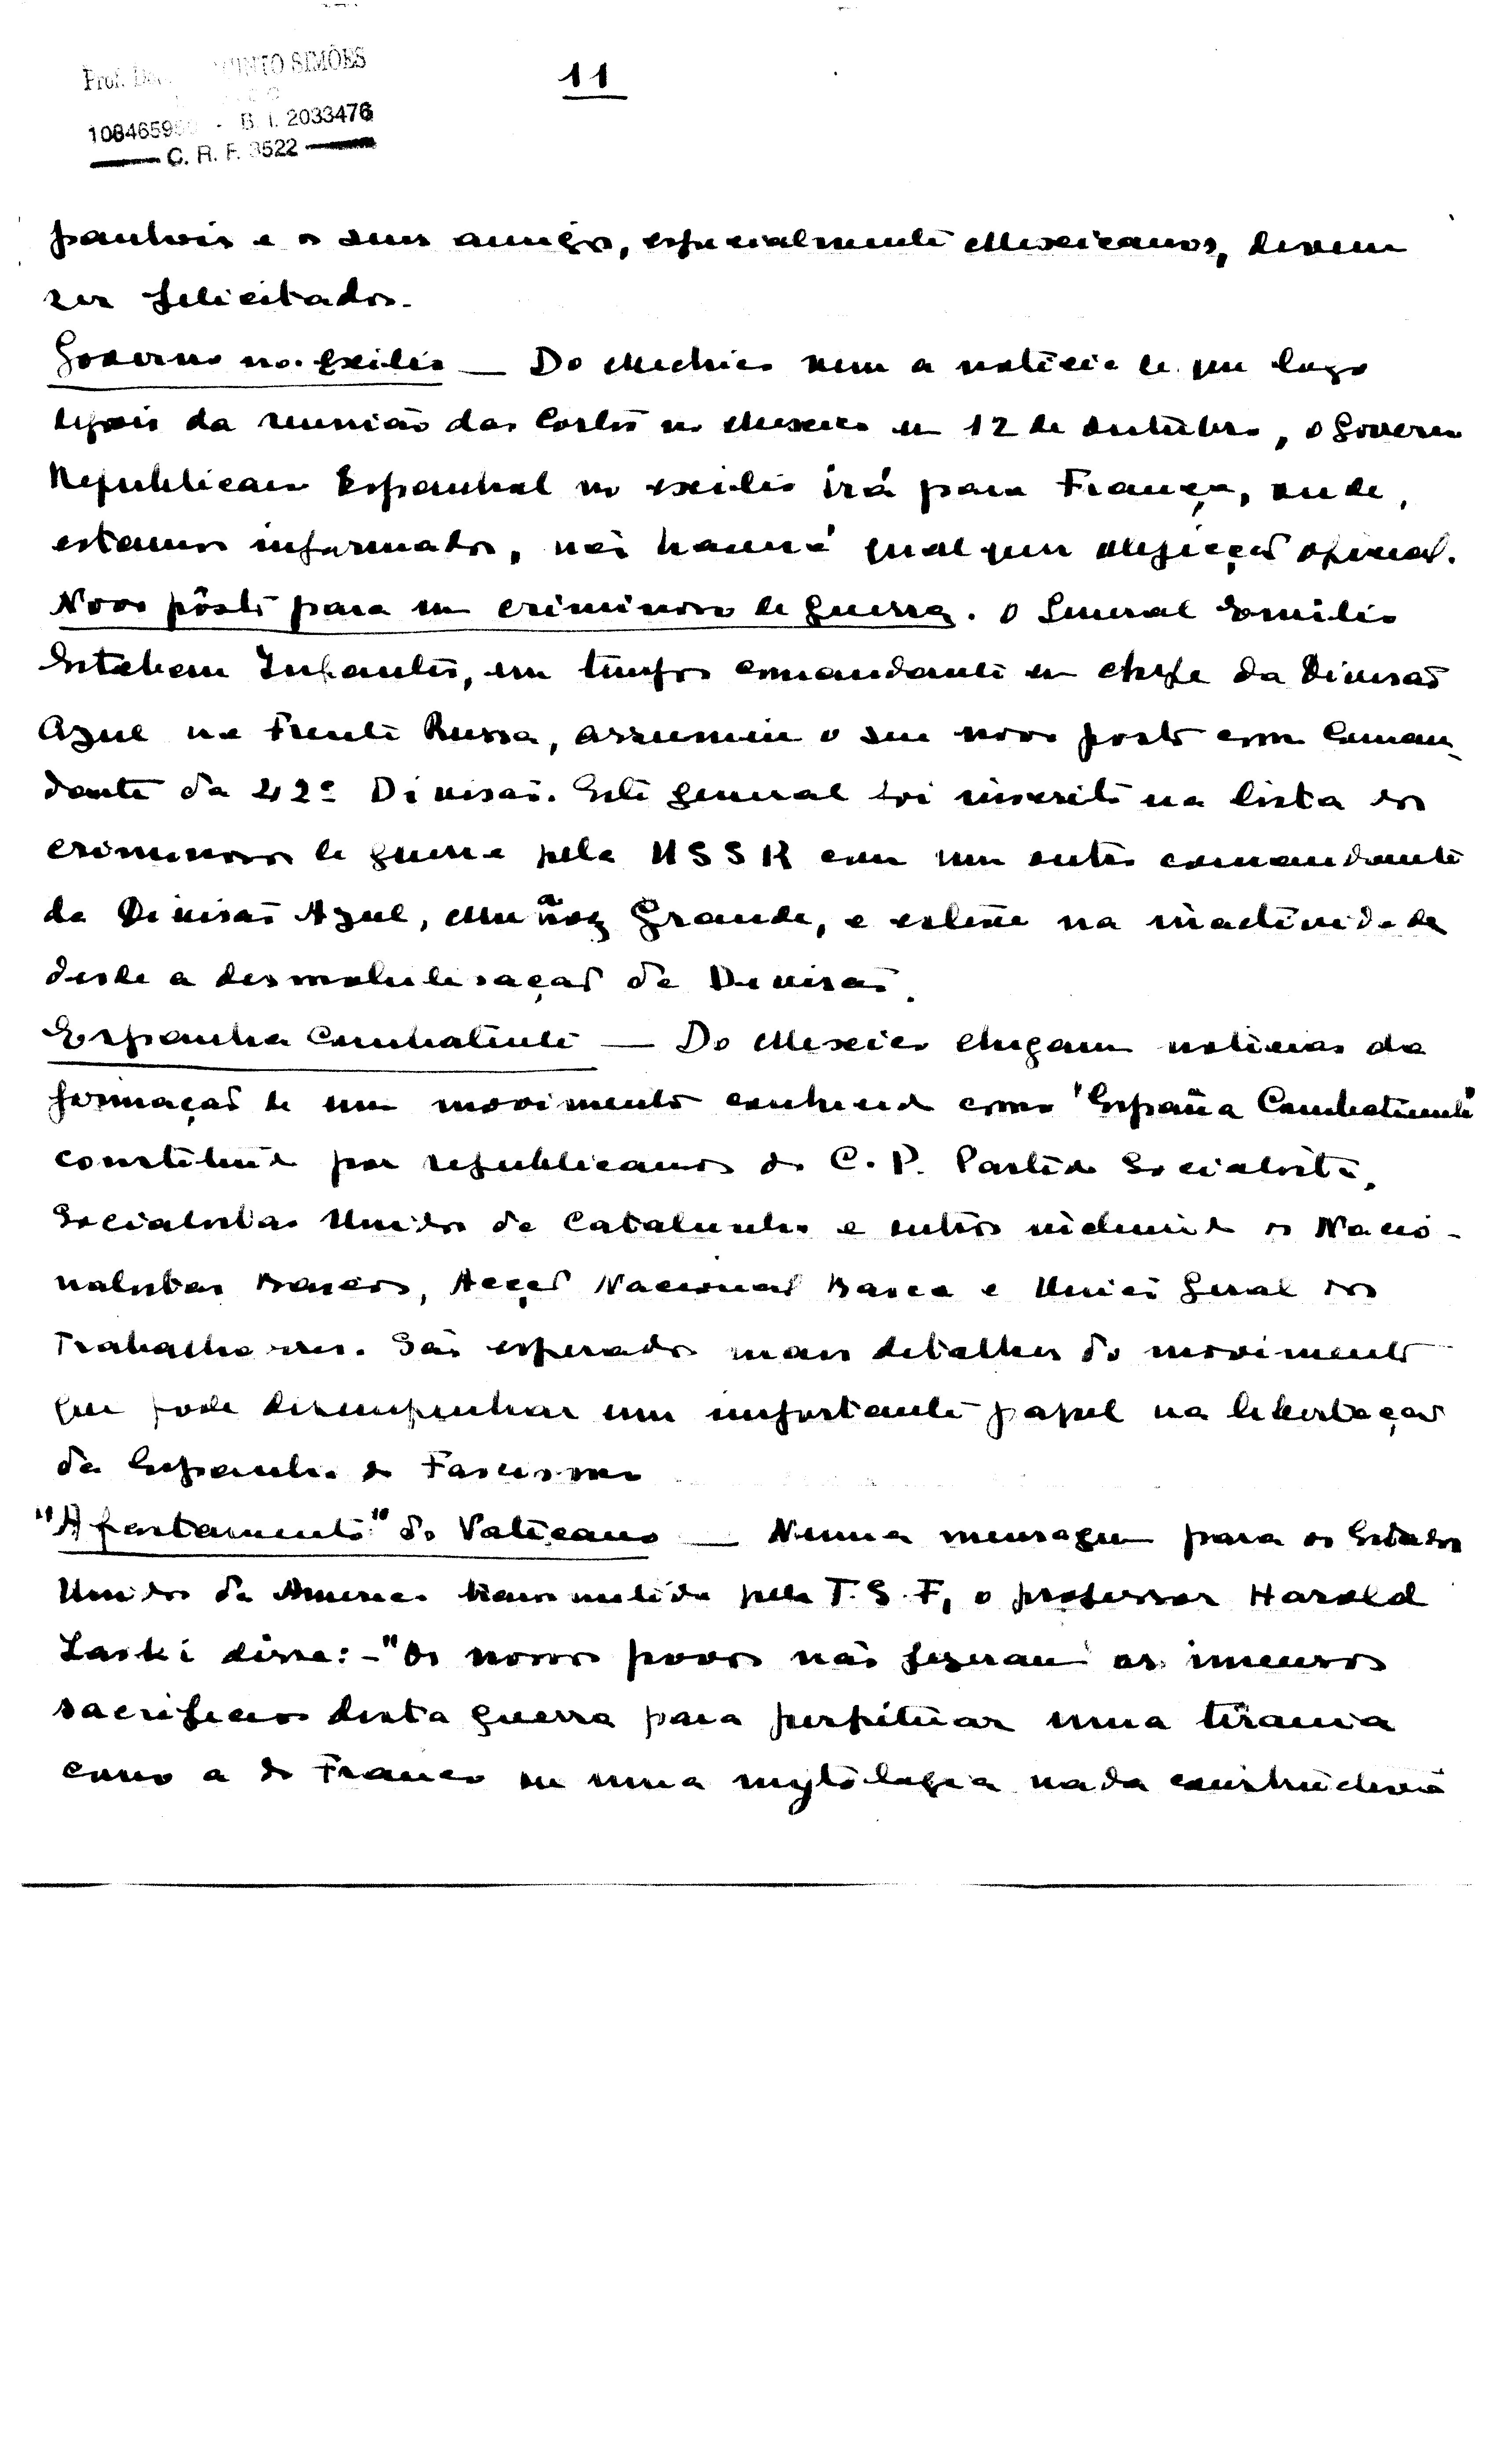 Prof. SIMÕES
11
B. I. 2033476
C. R. F. 3522
panhois e os seus amigos, especialmente Mexicanos, devem
ser felicitados.
Governo no exilio — Do Mechico vem a noticia de que logo
depois da reunião das Cortes no Mexico em 12 de outubro, o Governo
Republicano Espanhol no exilio irá para França, onde,
estamos informados, não haverá qualquer objecção oficial.
Novo pôsto para um criminoso de guerra. O General Emilio
Esteban Infantes, em tempos comandante em chefe da Divisão
Azul na Frente Russa, assumiu o seu novo posto como Coman-
dante da 42ª Divisão. Este general foi inscrito na lista dos
criminosos de guerra pela USSR com um outro comandante
da Divisão Azul, Muñoz Grande, e esteve na inactividade
desde a desmobilisação da Divisão.
Espanha Combatente — Do Mexico chegam noticias da
formação de um movimento conhecido como "España Combatiente"
constituido por republicanos do C. P. Partido Socialista,
Socialistas Unidos da Catalunha e outros incluindo os Nacio-
nalistas Bascos, Acção Nacional Basca e União Geral dos
Trabalhadores. São esperados mais detalhes do movimento
que pode desempenhar um importante papel na libertação
da Espanha do Fascismo
"Afastamento" do Vaticano — Numa mensagem para os Estados
Unidos da America transmitida pela T. S. F, o professor Harold
Laski disse: - "Os nossos povos não fizeram os imensos
sacrificios desta guerra para perpetuar uma tirania
como a do Franco ou uma mytologia nada constructiva